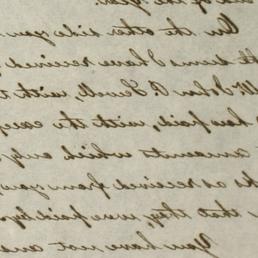 of the year.
On the other side you
the sums I have received
Mr John P. Jewett, with t
how paid, with the exp
amounts which only
as received from you
that they were paid by
You have not ans